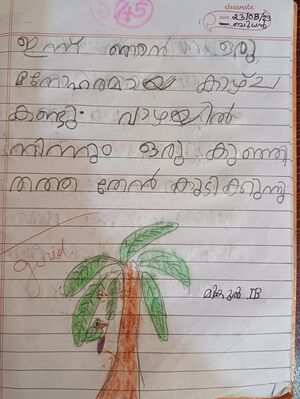 45
classmate
Date 23/08/23
ബുധൻ
ഇന്ന് ഞാൻ ഒരു
മനോഹരമായ കാഴ്ച
കണ്ടു. വാഴയിൽ
നിന്നും ഒരു കുഞ്ഞി
തത്ത തേൻ കുടിക്കുന്നു
good
IB